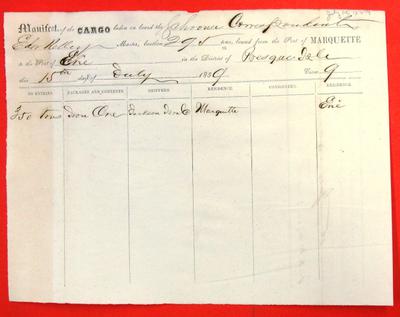 Manifest of the CARGO laden on board the Schooner Correspondent
Master, burthen 295 tons, bound from the Port of MARQUETTE
to the Port of Erie in the District of Presque Isle
this 15th day of July 1859
NO ENTRIES. PACKAGES AND CONTENTS. SHIPPERS. RESIDENCE. CONSIGNEES. RESIDENCE.
Erie
350 tons Iron Ore Jackson Iron Co Marquette